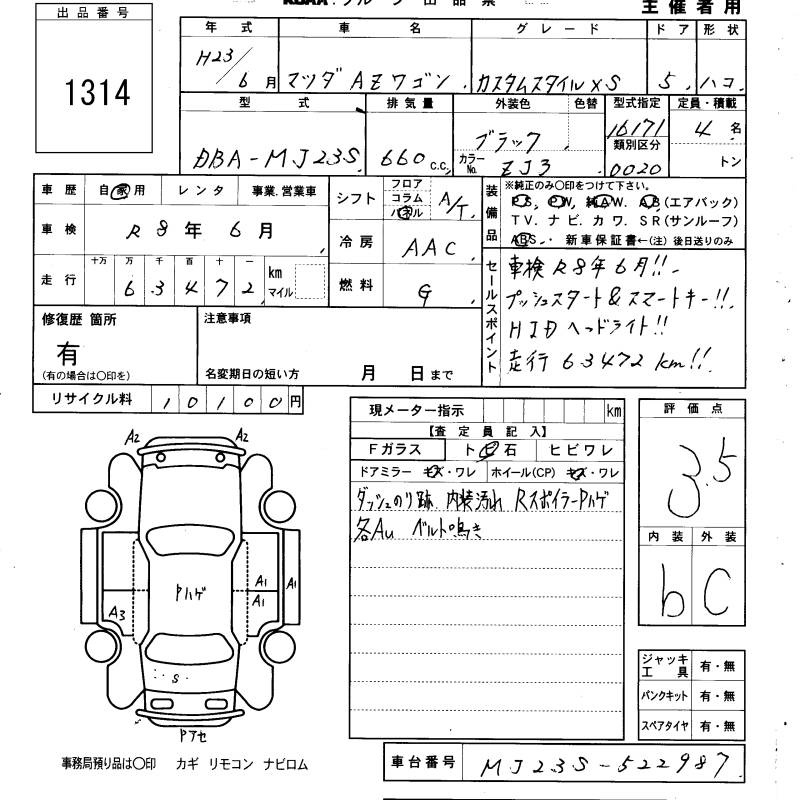 主催者用
出品番号
1314
年式 車名 グレード ドア 形状
H23/6月 マツダ AZワゴン カスタムスタイルXS 5 ハコ
型式 排気量 外装色 色替 型式指定 定員・積載
DBA-MJ23S 660 c.c. ブラック カラーNo. ZJ3 16171 4名
類別区分 0020 トン
車歴 自家用 レンタ 事業.営業車
車検 R8年6月
走行 十万 万 千 百 十 一 km マイル
63472
シフト フロア コラム パネル A/T
冷房 AAC
燃料 G
装備品 ※純正のみ〇印をつけて下さい。
PS, PW, 純AW. AB(エアバック)
TV. ナビ. カワ. SR(サンルーフ)
ABS. 新車保証書←(注)後日送りのみ
セールスポイント
車検R8年6月!!
プッシュスタート&スマートキー!!
HIDヘッドライト!!
走行63472km!!
修復歴 箇所
有
(有の場合は〇印を)
注意事項
名変期日の短い方 月 日まで
リサイクル料 10100円
現メーター指示 km
【査定員記入】
Fガラス ト ビ 石 ヒビワレ
ドアミラー キズ・ワレ ホイール(CP) キズ・ワレ
ダッシュのり跡 内装汚れ RスポイラーPハゲ
各AU ベルト鳴き
評価点
3.5
内装 外装
b C
ジャッキ工具 有・無
パンクキット 有・無
スペアタイヤ 有・無
A2 A2
A1 A1
Pハゲ A1
A3
S
A2
Pアセ
事務局預り品は〇印 カギ リモコン ナビロム
車台番号 MJ23S-522987